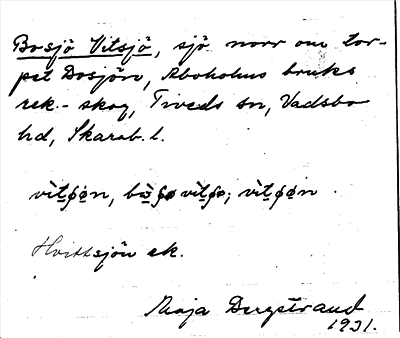 Bosjö Vitsjö, sjö norr om tor-
pet Bosjön, Aboholms bruks
rek.-skog, Tiveds sn, Vadsbo
hd, Skarab. l.
Hvittsjön ek.
Maja Bergstrand
1931.